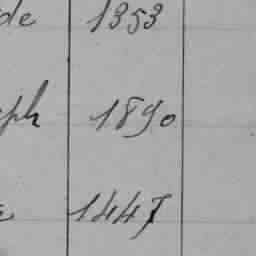 de 1353
ph 1890
1447